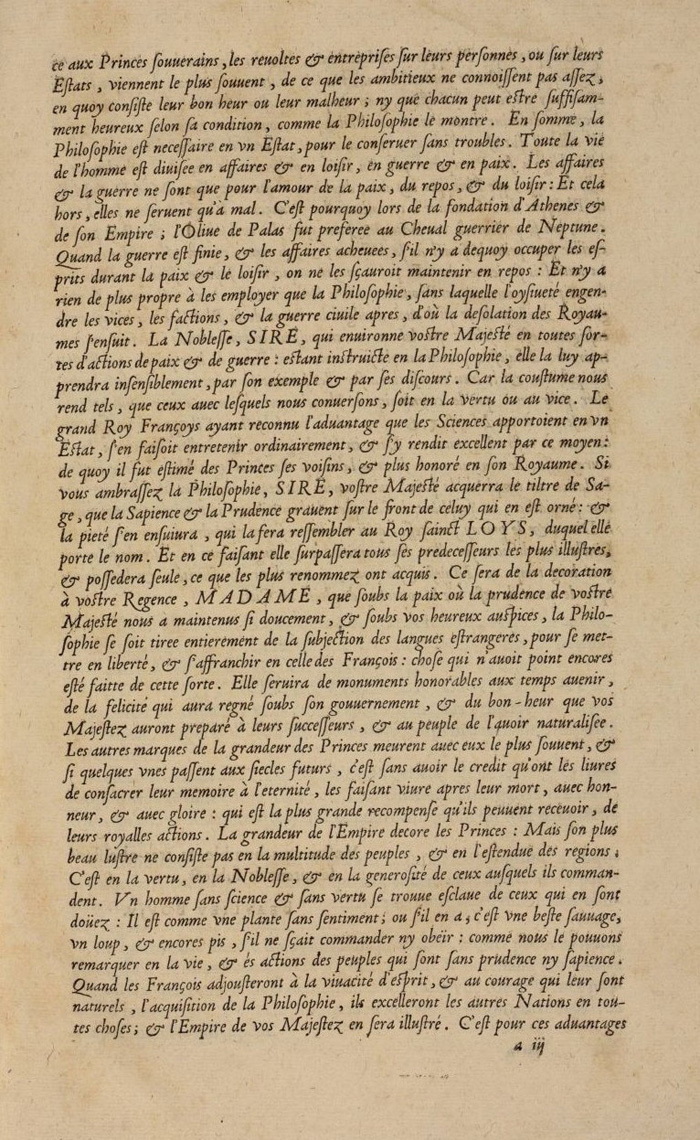 ce aux Princes ſouuerains, les reuoltes & entrepriſes ſur leurs perſonnes, ou ſur leurs
Eſtats, viennent le plus ſouuent, de ce que les ambitieux ne connoiſſent pas aſſez,
en quoy conſiſte leur bon heur ou leur malheur; ny que chacun peut eſtre ſuffiſam-
ment heureux ſelon ſa condition, comme la Philoſophie le montre. En ſomme, la
Philoſophie eſt neceſſaire en vn Eſtat, pour le conſeruer ſans troubles. Toute la vie
de l'homme eſt diuiſee en affaires & en loiſir, en guerre & en paix. Les affaires
& la guerre ne ſont que pour l'amour de la paix, du repos, & du loiſir: Et cela
hors, elles ne ſeruent qu'à mal. C'eſt pourquoy lors de la fondation d'Athenes &
de ſon Empire; l'Oliue de Palas fut preferee au Cheual guerrier de Neptune.
Quand la guerre eſt finie, & les affaires acheuees, ſ'il n'y a dequoy occuper les eſ-
prits durant la paix & le loiſir, on ne les ſçauroit maintenir en repos: Et n'y a
rien de plus propre à les employer que la Philoſophie, ſans laquelle l'oyſiueté engen-
dre les vices, les factions, & la guerre ciuile apres, d'où la deſolation des Royau-
mes ſ'enſuit. La Nobleſſe, SIRE, qui enuironne voſtre Majeſté en toutes ſor-
tes d'actions de paix & de guerre: eſtant inſtruicte en la Philoſophie, elle la luy ap-
prendra inſenſiblement, par ſon exemple & par ſes diſcours. Car la couſtume nous
rend tels, que ceux auec leſquels nous conuerſons, ſoit en la vertu ou au vice. Le
grand Roy Françoys ayant reconnu l'aduantage que les Sciences apportoient en vn
Eſtat, ſ'en faiſoit entretenir ordinairement, & ſ'y rendit excellent par ce moyen:
de quoy il fut eſtimé des Princes ſes voiſins, & plus honoré en ſon Royaume. Si
vous ambraſſez la Philoſophie, SIRE, voſtre Majeſté acquerra le tiltre de Sa-
ge, que la Sapience & la Prudence grauent ſur le front de celuy qui en eſt orné: &
la pieté ſ'en enſuiura, qui la fera reſſembler au Roy ſainct LOYS, duquel elle
porte le nom. Et en ce faiſant elle ſurpaſſera tous ſes predeceſſeurs les plus illuſtres,
& poſſedera ſeule, ce que les plus renommez ont acquis. Ce ſera de la decoration
à voſtre Regence, MADAME, que ſoubs la paix où la prudence de voſtre
Majeſté nous a maintenus ſi doucement, & ſoubs vos heureux auſpices, la Philo-
ſophie ſe ſoit tiree entierement de la ſubjection des langues eſtrangeres, pour ſe met-
tre en liberté, & ſ'affranchir en celle des François: choſe qui n'auoit point encores
eſté faitte de cette ſorte. Elle ſeruira de monuments honorables aux temps auenir,
de la felicité qui aura regné ſoubs ſon gouuernement, & du bon-heur que vos
Majeſtez auront preparé à leurs ſucceſſeurs, & au peuple de l'auoir naturaliſee.
Les autres marques de la grandeur des Princes meurent auec eux le plus ſouuent, &
ſi quelques vnes paſſent aux ſiecles futurs, c'eſt ſans auoir le credit qu'ont les liures
de conſacrer leur memoire à l'eternité, les faiſant viure apres leur mort, auec hon-
neur, & auec gloire: qui eſt la plus grande recompenſe qu'ils peuuent receuoir, de
leurs royalles actions. La grandeur de l'Empire decore les Princes: Mais ſon plus
beau luſtre ne conſiſte pas en la multitude des peuples, & en l'eſtendue des regions;
C'eſt en la vertu, en la Nobleſſe, & en la generoſité de ceux auſquels ils comman-
dent. Vn homme ſans ſcience & ſans vertu ſe trouue eſclaue de ceux qui en ſont
doüez: Il eſt comme vne plante ſans ſentiment; ou ſ'il en a, c'eſt vne beſte ſauuage,
vn loup, & encores pis, ſ'il ne ſçait commander ny obeïr: comme nous le pouuons
remarquer en la vie, & és actions des peuples qui ſont ſans prudence ny ſapience.
Quand les François adjouſteront à la viuacité d'eſprit, & au courage qui leur ſont
naturels, l'acquiſition de la Philoſophie, ils excelleront les autres Nations en tou-
tes choſes; & l'Empire de vos Majeſtez en ſera illuſtré. C'eſt pour ces aduantages
a iij